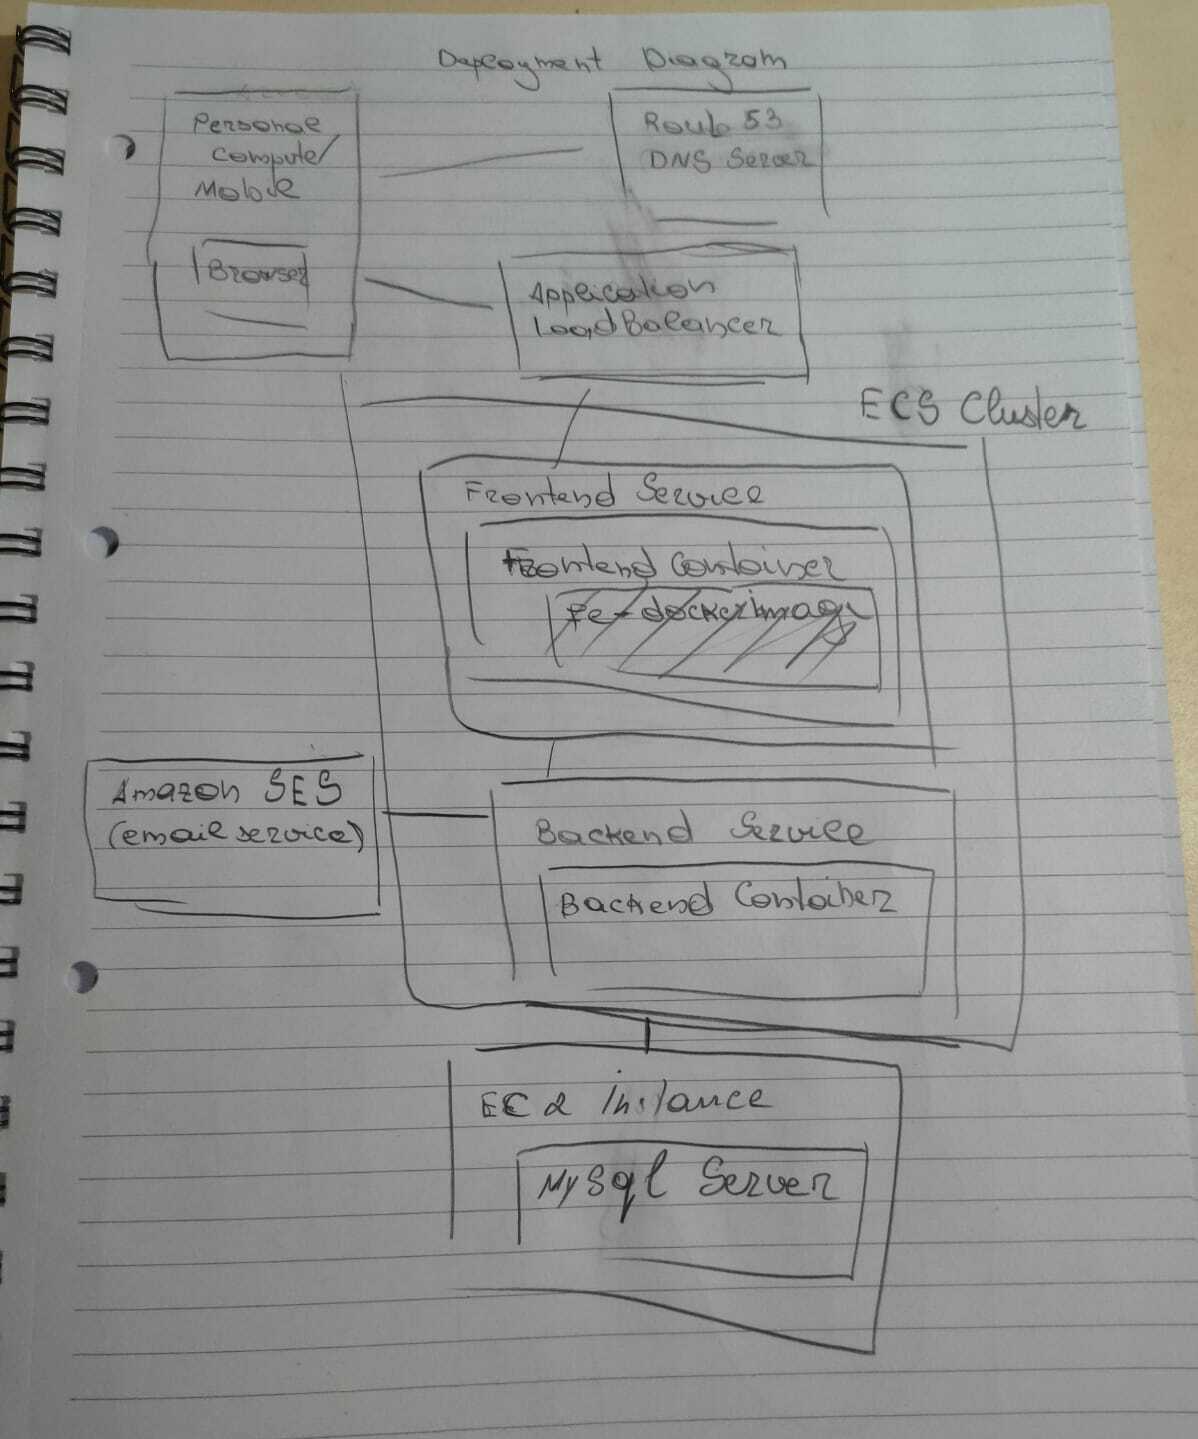 Deployment Diagram
Personal
Computer/
Mobile
Browser
Route 53
DNS Server
Application
Load Balancer
ECS Cluster
Frontend Service
Frontend Container
Fe-dockerimage
Amazon SES
(email service)
Backend Service
Backend Container
EC2 Instance
MySql Server